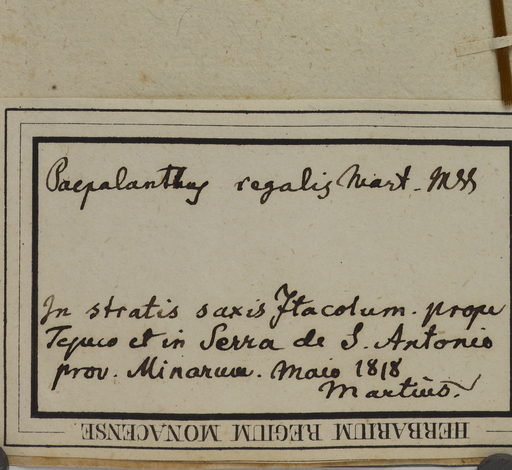 Paepalanthus regalis Mart. MSS
In stratis saxis Itacolum. prope
Tejuco et in Serra de S. Antonio
prov. Minarum. Maio 1818
Martius.
HERBARIUM REGIUM MONACENSE.